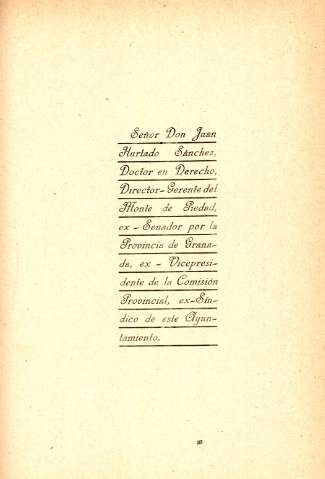 Señor Don Juan
Hurtado Sánchez,
Doctor en Derecho,
Director-Gerente del
Monte de Piedad,
ex-Senador por la
Provincia de Grana-
da, ex-Vicepresi-
dente de la Comisión
Provincial, ex-Sín-
dico de este Ayun-
tamiento.